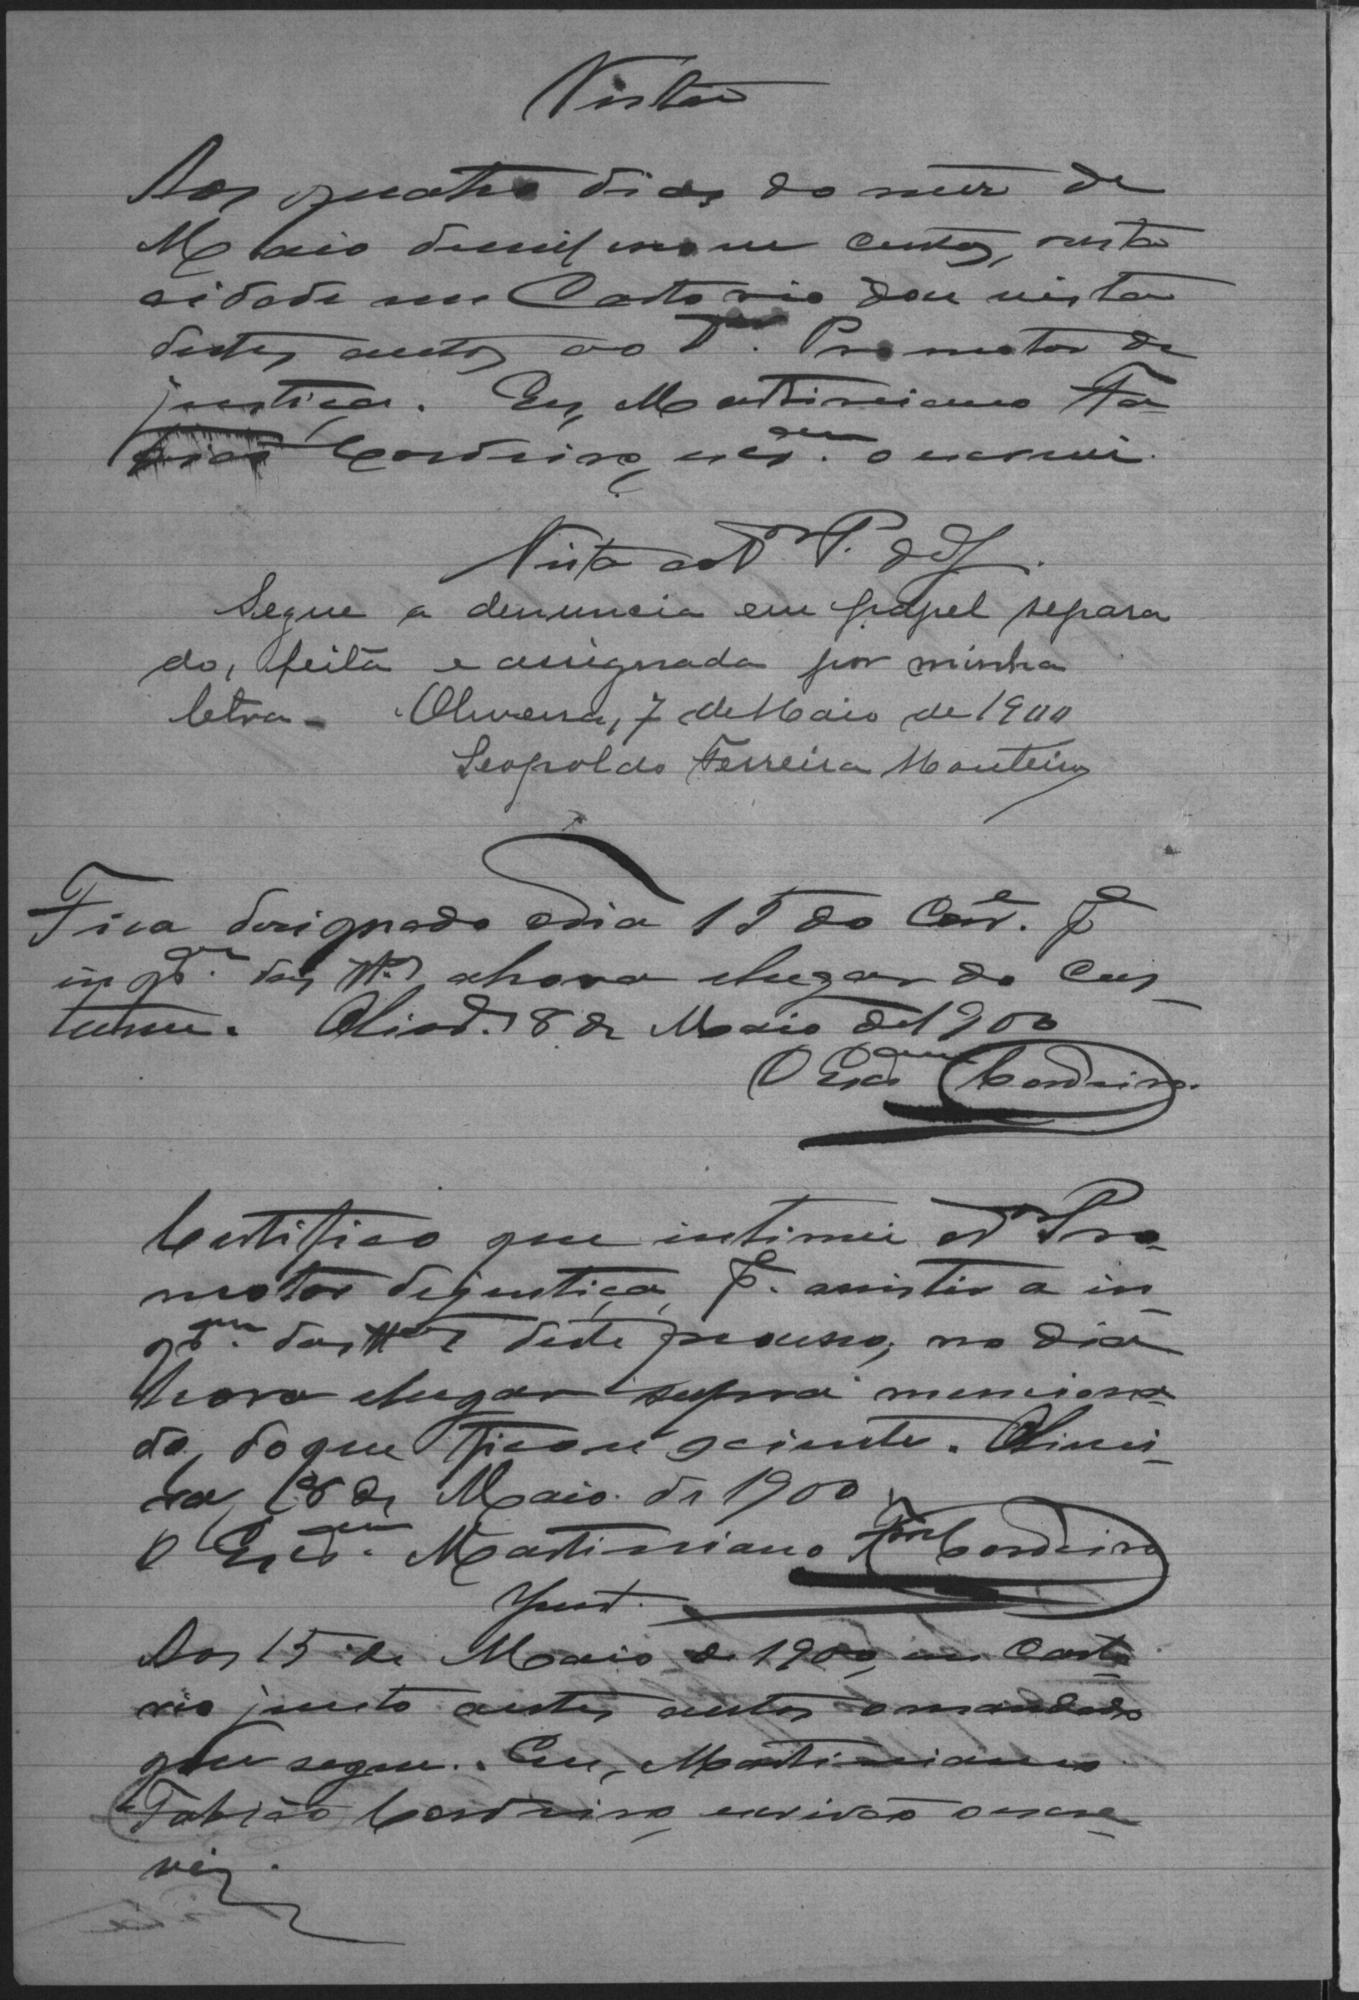 Vista
Aos quatro dias do mez de
Maio de mil nove centos, nesta
cidade em Cartorio dou vista
destes autos ao Dr. Promotor de
justiça. Eu, Martiniano Fa-
bião Cordeiro, escam. o escrevi.
Vista ao Dr P. de J.
Segue a denuncia em papel separa
do, feita e assignada por minha
letra. Oliveira, 7 de Maio de 1900
Leopoldo Ferreira Monteiro
Fica designado o dia 15 do Corre. pa
inqam. das ttas, a hora e lugar do cus-
tume. Olivra. 8 de Maio de 1900
O Escam Cordeiro.
Certifico que intimei o Dr Pro-
motor de justiça, pa. assistir a in-
qam. das ttas deste processo, no dia
hora e lugar supra menciona-
do, do que ficou sciente. Olivei-
ra, 8 de Maio de 1900.
O Escam. Martiniano Fam Cordeiro
Junt.
Aos 15 de Maio de 1900, em Carto-
rio junto a estes autos o mandado
que segue. Eu, Martiniano
Fabião Cordeiro, escrivão o escre-
vi.